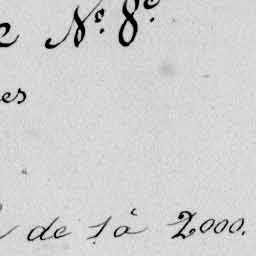 e N.° 8.°
es
de 1 à 2000.